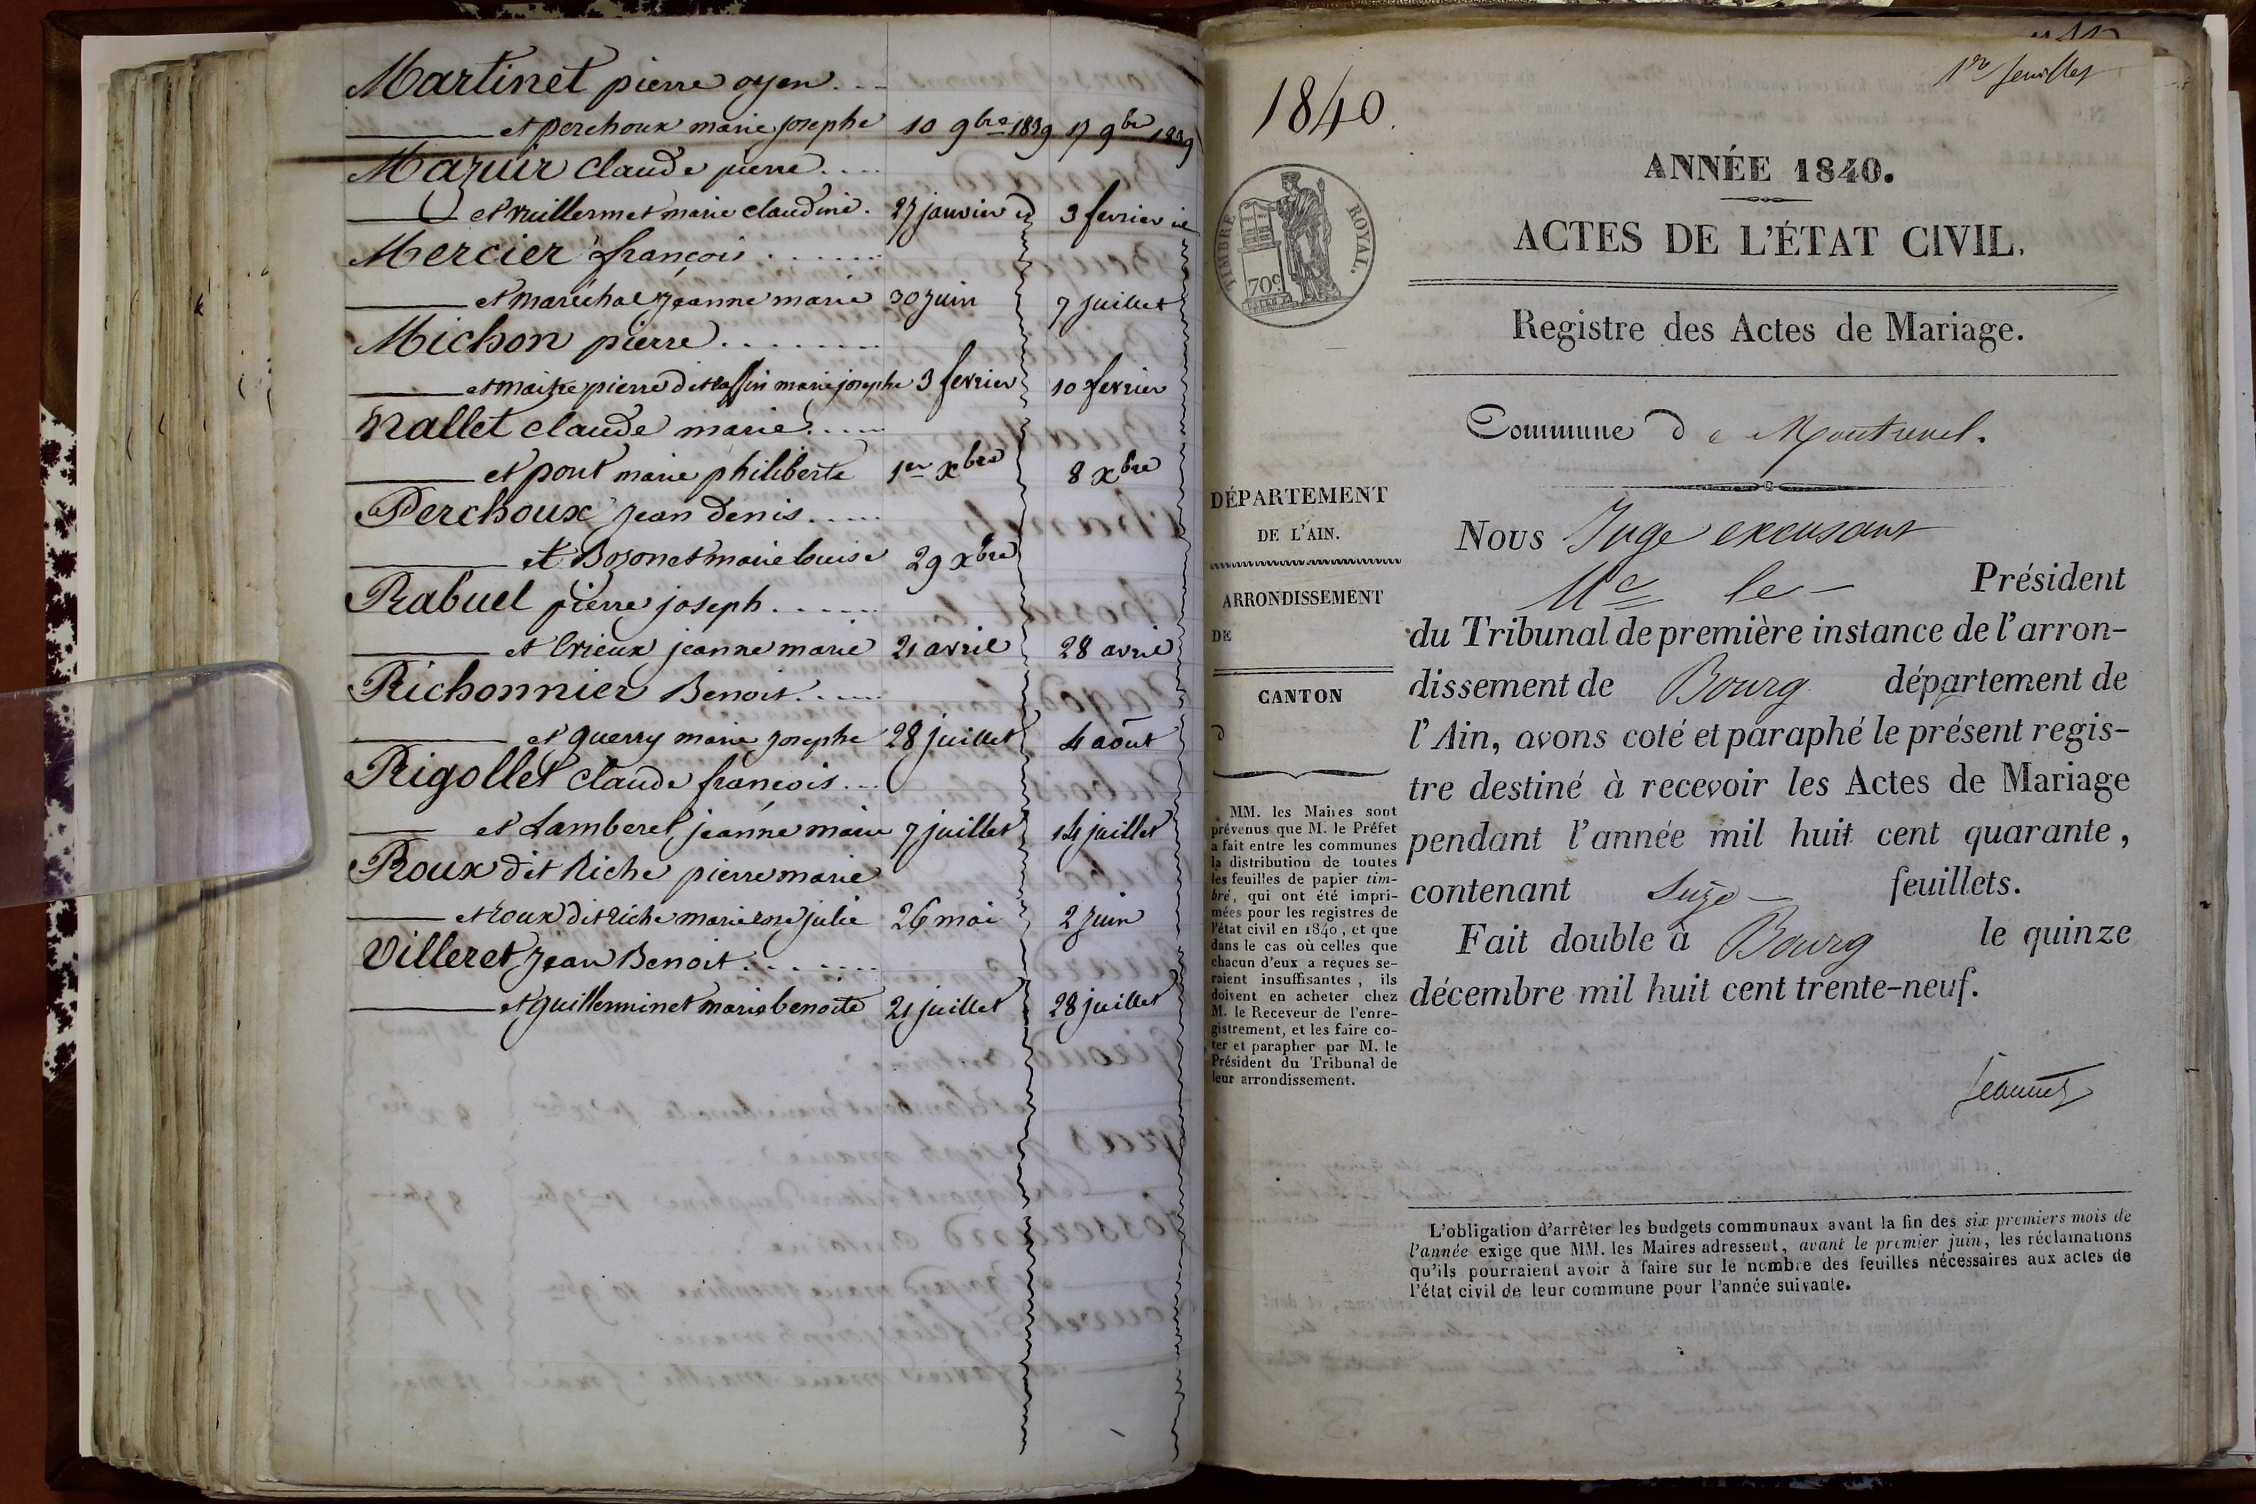 Martinet pierre oyen
et perchoux marie josephe 10 9bre 1839 17 9bre 1839
Mazuir claude pierre
et vuillermet marie claudine 27 janvier id 3 fevrier id
Mercier françois
et maréchal jeanne marie 30 juin 7 juillet
Michon pierre
et maitre pierre dit marie josephe 3 fevrier 10 fevrier
Nallet claude marie
et pont marie philiberte 1er xbre 8 xbre
Perchoux jean denis
et Bozonet marie louise 29 xbre
Rabuel pierre joseph
et Crieux jeanne marie 21 avril 28 avril
Richonnier Benoit
et querry marie josephe 28 juillet 4 août
Rigollet claude francois
et Lamberet jeanne marie 7 juillet 14 juillet
Roux dit Riche pierre marie
et roux dit riche marie julie 26 mai 2 juin
Villeret jean Benoit
et guilleminet marie benoite 21 juillet 28 juillet
1er feuillet
1840.
ANNÉE 1840.
ACTES DE L'ÉTAT CIVIL.
TIMBRE ROYAL.
70c
Registre des Actes de Mariage.
Commune de Montrevel.
DÉPARTEMENT
DE L'AIN.
ARRONDISSEMENT
DE
CANTON
d
MM. les Maires sont
prévenus que M. le Préfet
a fait entre les communes
la distribution de toutes
les feuilles de papier tim-
bré, qui ont été impri-
mées pour les registres de
l'état civil en 1840, et que
dans le cas où celles que
chacun d'eux a reçues se-
raient insuffisantes, ils
doivent en acheter chez
M. le Receveur de l'enre-
gistrement, et les faire co-
ter et parapher par M. le
Président du Tribunal de
leur arrondissement.
Nous Juge excusant
Mr le Président
du Tribunal de première instance de l'arron-
dissement de Bourg département de
l'Ain, avons coté et paraphé le présent regis-
tre destiné à recevoir les Actes de Mariage
pendant l'année mil huit cent quarante,
contenant Seize feuillets.
Fait double à Bourg le quinze
décembre mil huit cent trente-neuf.
L'obligation d'arrêter les budgets communaux avant la fin des six premiers mois de
l'année exige que MM. les Maires adressent, avant le premier juin, les réclamations
qu'ils pourraient avoir à faire sur le nombre des feuilles nécessaires aux actes de
l'état civil de leur commune pour l'année suivante.